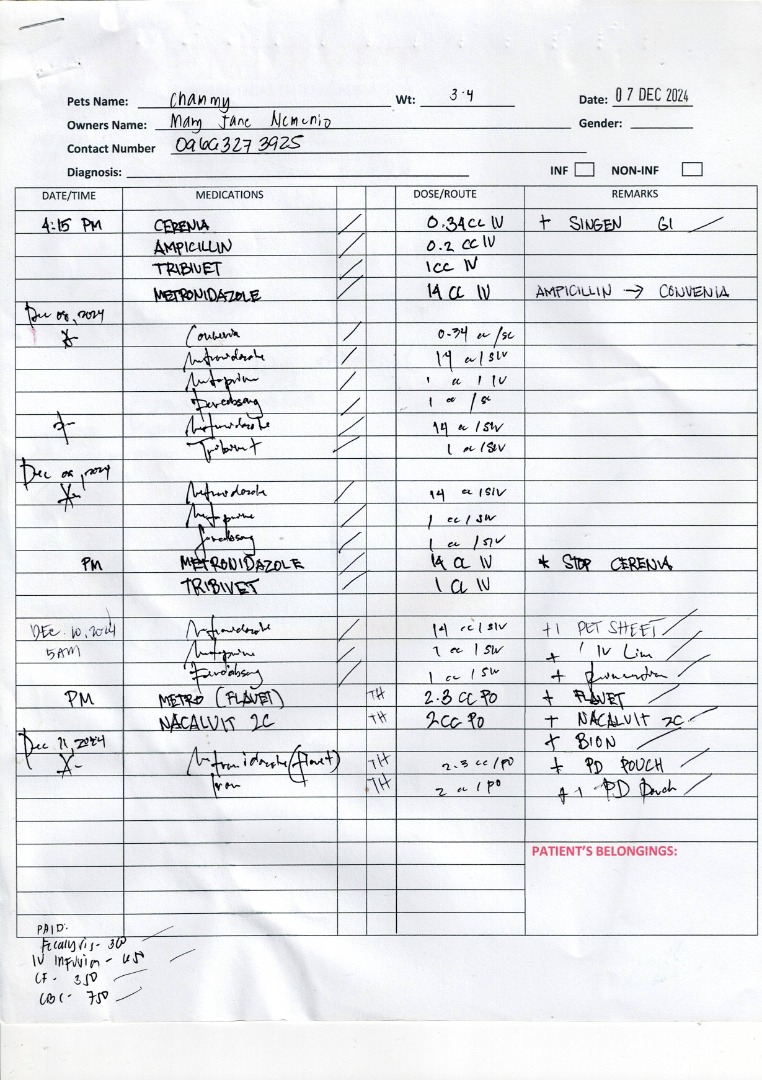 Pets Name: Chammy Wt: 3.4 Date: 07 DEC 2024
Owners Name: Mary Jane Nemenio Gender:
Contact Number 0960327 3925
Diagnosis: INF NON-INF
DATE/TIME MEDICATIONS DOSE/ROUTE REMARKS
4:15 PM CERENIA 0.34cc IV + SINGEN GI
AMPICILLIN 0.2 cc IV
TRIBIVET 1cc IV
METRONIDAZOLE 14 CC IV AMPICILLIN → CONVENIA
Dec 08, 2024
Convenia 0.34 cc/sc
Metronidazole 14 cc/SIV
1 cc / IV
1 cc / sc
Metronidazole 14 cc/SIV
Tribivet 1 cc/SIV
Dec 2024
Metronidazole 14 cc/SIV
1 cc / SIV
1 cc / SIV
PM METRONIDAZOLE 14 CC IV * STOP CERENIA
TRIBIVET 1 CC IV
DEC. 10, 2024 Metronidazole 14 cc/SIV +1 PET SHEET
5AM cc / SIV + 1 IV Line
1 cc / SIV +
PM METRO (FLAVET) TH 2.3 CC PO + FLAVET
NACALVIT 2C TH 2CC PO + NACALVIT 2C
Dec 11, 2024 + BION
Metronidazole (flavet) TH 2.3 cc/PO + PD POUCH
Iron TH 2 cc / PO + 1 P.D Pouch
PATIENT'S BELONGINGS:
PAID:
Fecalysis - 300
IV Infusion - 650
CF - 350
CBC - 750